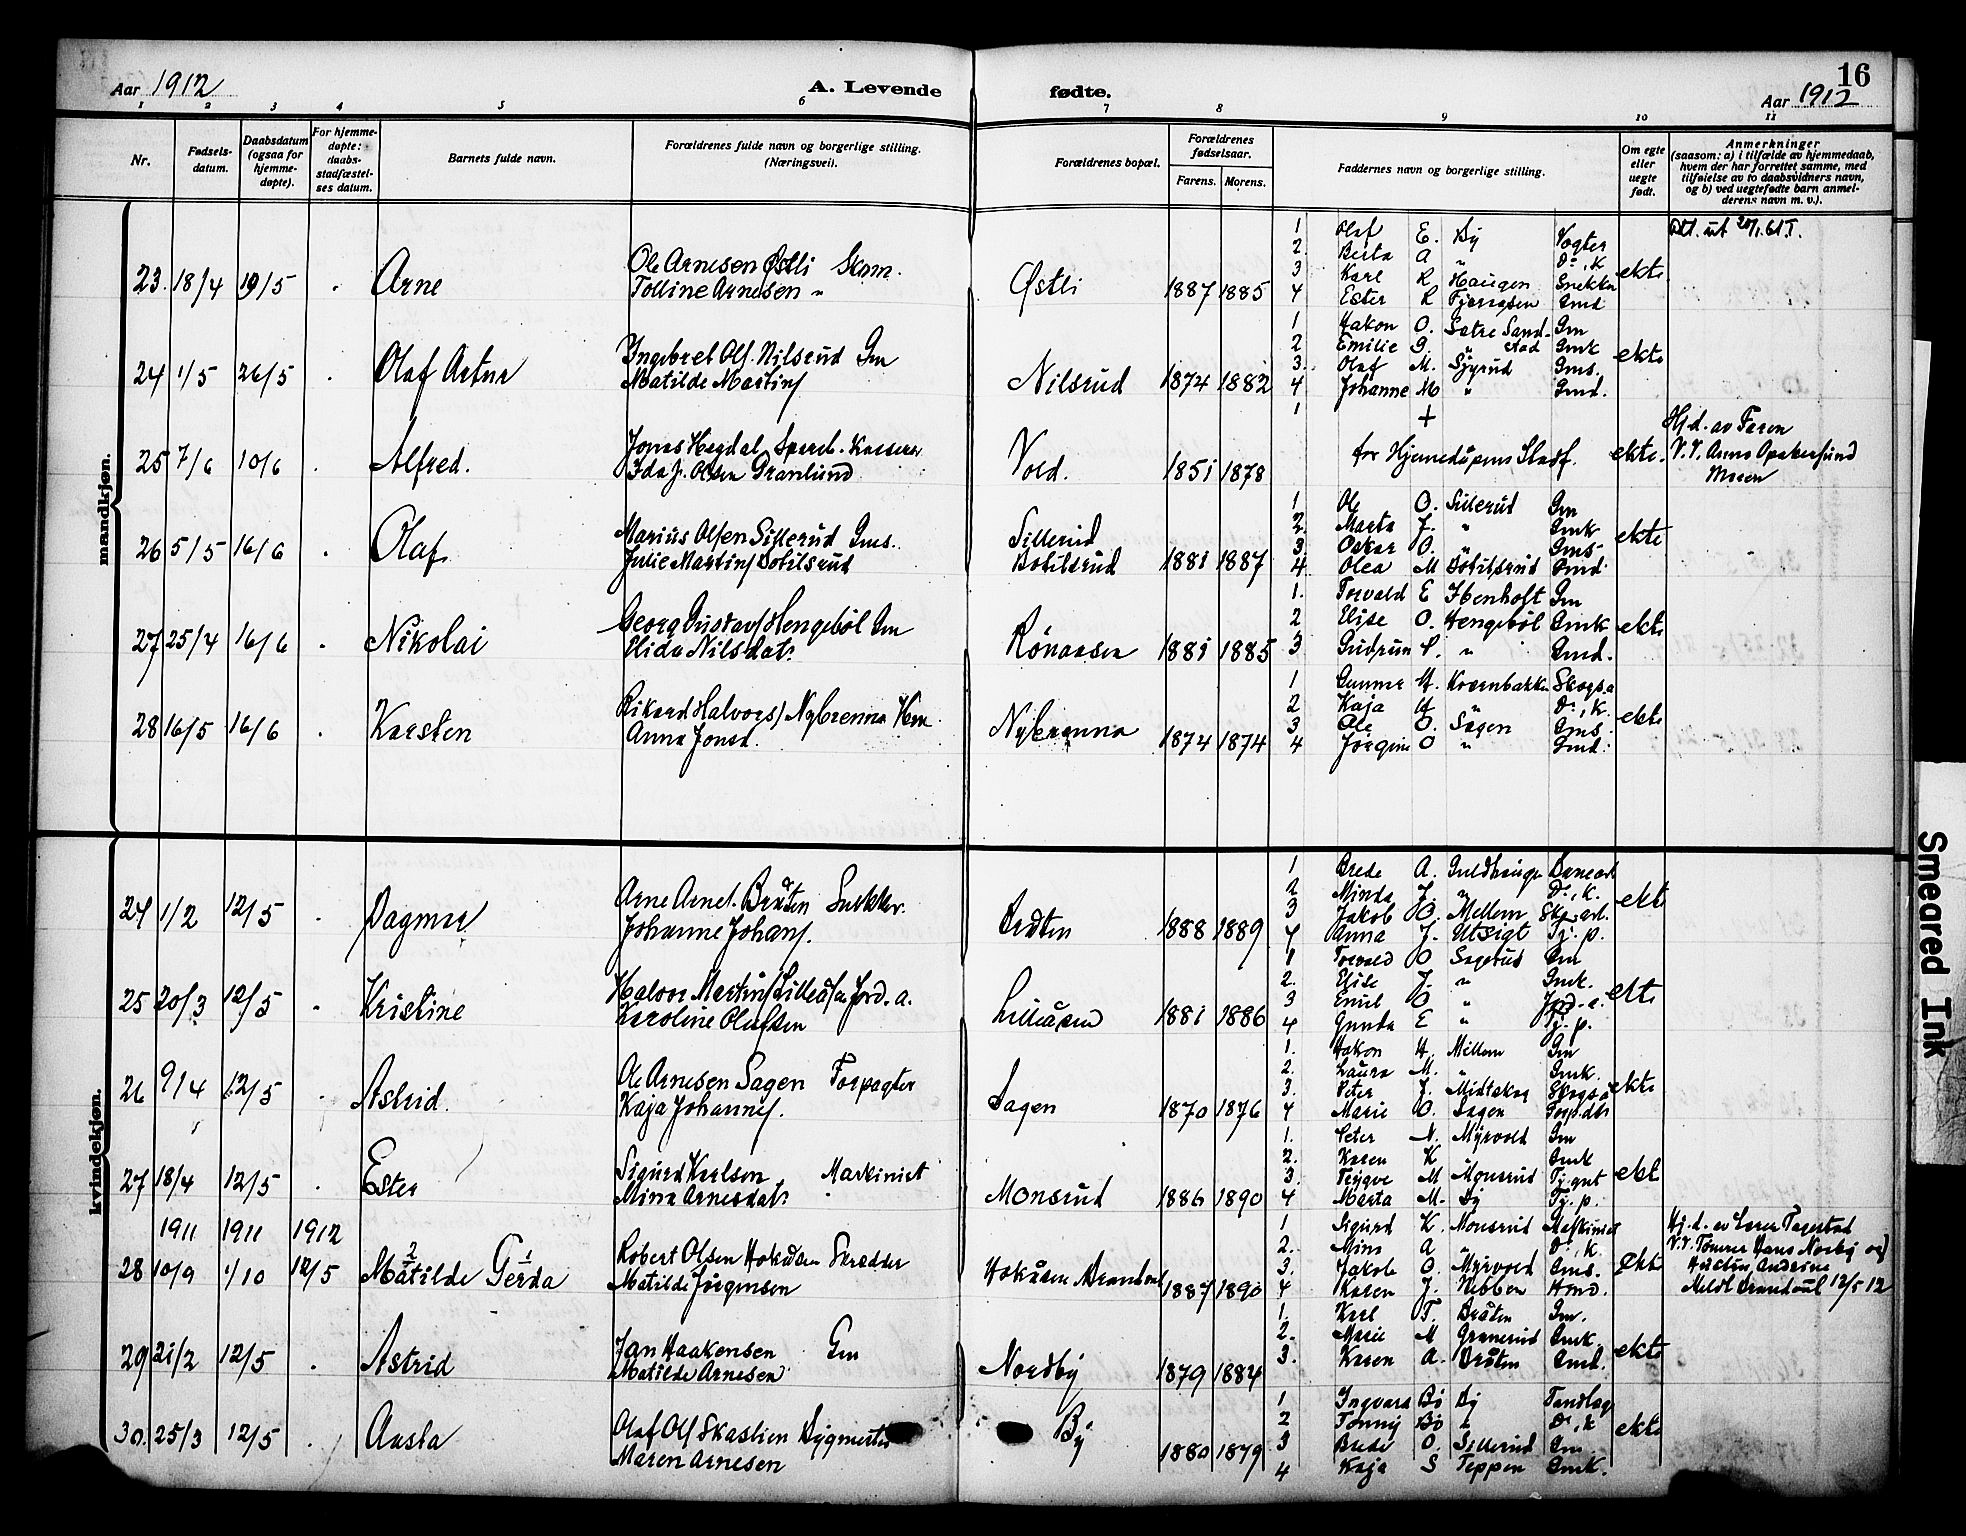 Aar 1912
A. Levende
fødte.
16
Aar 1912
1 2 3 4 5 6 7 8 9 10 11
Nr.
Fødsels-
datum.
Daabsdatum
(ogsaa for
hjemme-
døpte).
For hjemme-
døpte:
daabs-
stadfæstel-
ses datum.
Barnets fulde navn.
Forældrenes fulde navn og borgerlige stilling.
(Næringsvei).
Forældrenes bopæl.
Forældrenes
fødselsaar.
Farens. Morens.
Faddernes navn og borgerlige stilling.
Om egte
eller
uegte
født.
Anmerkninger
(saasom: a) i tilfælde av hjemmedaab,
hvem der har forrettet samme, med
tilføielse av to daabsvidners navn,
og b) ved uegtefødte barn anmel-
derens navn m. v.).
mandkjøn.
23. 18/4 19/5 Arne
Ole Arnesen Østli
Tolline Arnesen "
Østli 1887 1885
1 Olaf E. By Vogter
2. Berta A " Do, K
3 Karl R Haugen Snekker
4 Ester R Gmd
ekte
Att. ut
24 1/5 26/5 Olaf Artur
Ingebret Ols. Nilsrud Gm
Matilde Martins
Nilsrud 1874 1882
1 Hakon O. Sætre Sand- Gm
2 Emilie G. " stad Gmk
3. Olaf M. Gms.
4 Johanne M " Gmd.
ekte
25 7/6 10/6 Alfred.
Jonas Hagdal Spareb. Kasserer
Ida J. Olsen Granlund
Vold. 1851 1878
1 +
for Hjemedåpens Stadf.
ekte.
Hj.d. av Faren
V. V. Anne Opakersund
Moren
26 5/5 16/6 Olaf
Marius Olsen Sillerud Gms.
Julie Martins Botilsrud
Sillerud
Botilsrud 1881 1887
1 Ole O. Sillerud Gm
2. Marta J. " Gmk
3 Oskar O. " Gms
4. Olea M Botilsrud Gmd
ekte
27 25/4 16/6 Nikolai
Georg Gustavs Hengebøl Gm
Elida Nilsdatr
Rønaasen 1881 1885
1. Torvald E Ibenholt Gm
2 Elise O. Hengebøl Gmk
3 Gudrun " Gmd.
ekte
28 16/5 16/6 Karsten
Rikard Halvors Nybrenna
Anna Jonsd.
Nybrenna 1874 1874
1 Gunnar H. Kværnbakken Skogsa
2 Kaja H " Do, K.
3 Ole O. Sagen Gms.
4 Jørgine O " Gmd.
ekte
kvindekjøn.
24 1/2 12/5 Dagmar
Arne Arnes. Bråten Snekker.
Johanne Johans.
Bråten 1888 1889
1 Brede A. Guldhauge
2 Minda J. " Do, K.
3 Jakob O. Mellem Skogarb.
4 Anna J. Utsigt Tj. p.
ekt
25 20/3 12/5 Kristine
Halvor Martins Lilleåsen Jord. a.
Karoline Olufsen
Lilleåsen 1881 1886
1 Torvald O Sagerus Gm
2. Elise J. " Gmk.
3 Emil O " Jord. a.
4 Gunda E " Tj. p.
ekte
26 9/4 12/5 Astrid.
Ole Arnesen Sagen Forpagter
Kaja Johannes.
Sagen 1870 1876
1. Hakon H. Mellem Gm
2. Laura M. " Gmk.
3. Peter J. Midtskog Skogsa
4 Marie O. Sagen Forp.dtr
ekte
27 18/4 12/5 Ester
Sigurd Karlsen Maskinist
Mina Arnesdatr "
Monsrud 1886 1890
1. Peter N. Myrvold Gm
2. Karen K " Gmk
3. Trygve M Monsrud Tj.gut
4 Marta M. By Tj. p.
ekt
1911 1911 1912
28 10/9 1/10 12/5 Matilde 2 Gerda 1
Robert Olsen Hokåsen Skrædder
Matilde Jørgensen
Hokåsen Brandval 1887 1890
1 Sigurd K. Monsrud Maskinist
2. Mina A " Do, K.
3. Jakob O. Myrvold Gms.
4 Karen J. Nebben
Ekte
Hj. d. av Lærer Fagerstad
V. V. Tømrer Hans Norby og
Andersine
Meldt Brandval 12/5 12
29 21/2 12/5 Astrid
Jan Haakensen Gm
Matilde Arnesen
Nordby 1879 1884
1. Karl T. Bråten Gm.
2. Marie M Granerud Gmk.
3. Karen A. Bråten Gmd.
ekte
30. 25/3 12/5 Aasta
Olaf Ols Skaslien Bygmester
Maren Arnesen
By 1880 1879
1 Ingvard Bø By Tandlæg
2 Tonny Bø " Do, K
3 Brede O. Sillerud Gm.
4 Kaja S Teppen Gmk.
ekte
Smeared Ink